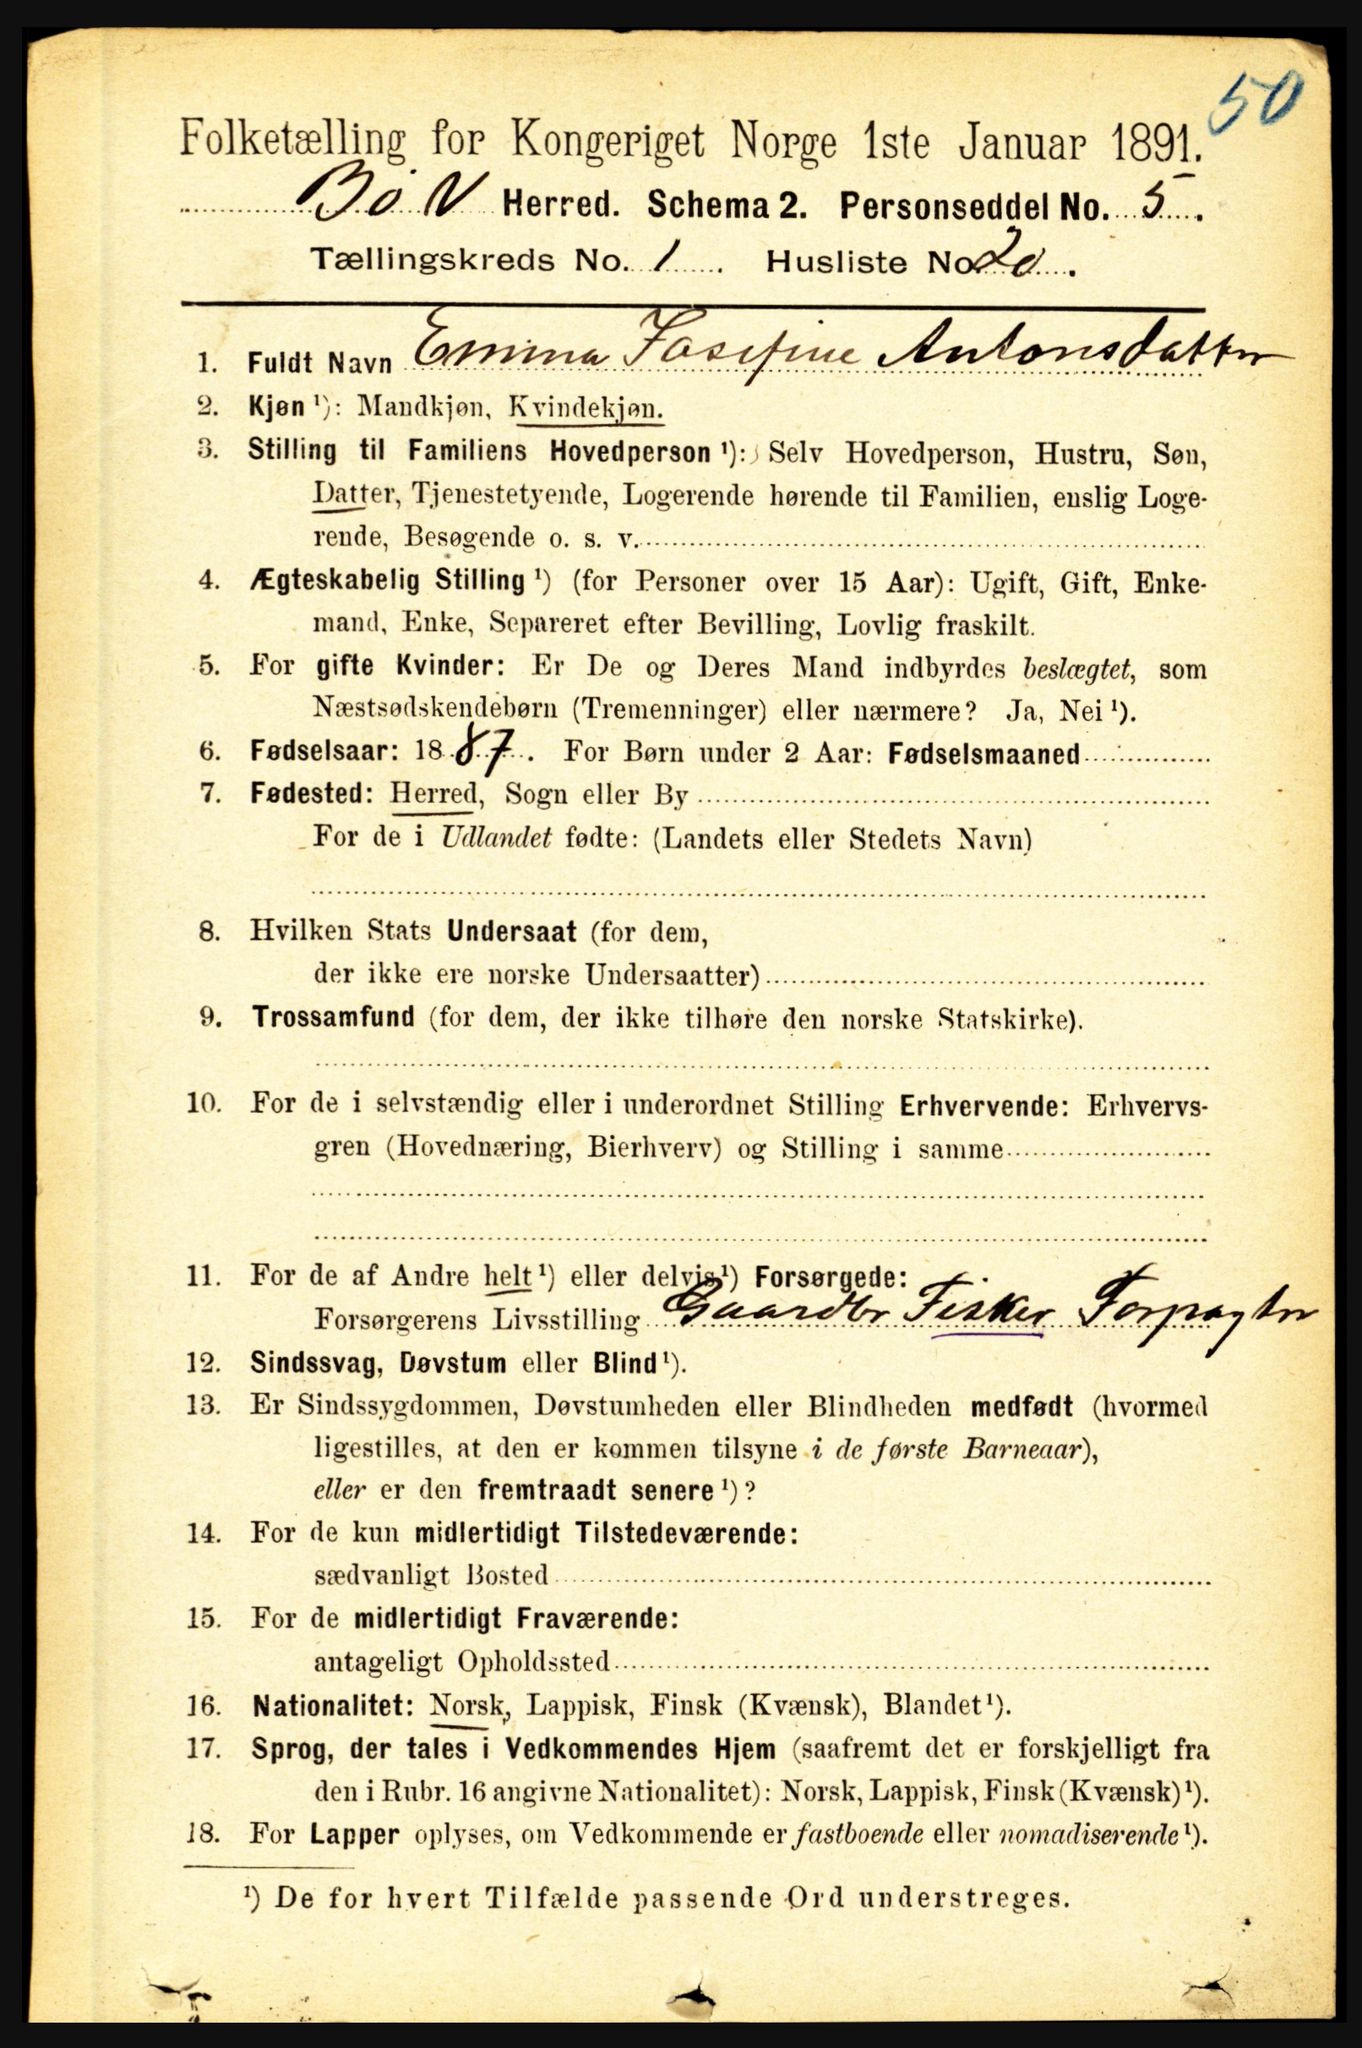 50
Folketælling for Kongeriget Norge 1ste Januar 1891.
Bø N Herred. Schema 2. Personseddel No. 5.
Tællingskreds No. 1. Husliste No 20.
1. Fuldt Navn Emma Josefine Antonsdatter
2. Kjøn ¹): Mandkjøn, Kvindekjøn.
3. Stilling til Familiens Hovedperson ¹): Selv Hovedperson, Hustru, Søn,
Datter, Tjenestetyende, Logerende hørende til Familien, enslig Loge-
rende, Besøgende o. s. v.
4. Ægteskabelig Stilling ¹) (for Personer over 15 Aar): Ugift, Gift, Enke-
mand, Enke, Separeret efter Bevilling, Lovlig fraskilt.
5. For gifte Kvinder: Er De og Deres Mand indbyrdes beslægtet, som
Næstsødskendebørn (Tremenninger) eller nærmere? Ja, Nei ¹).
6. Fødselsaar: 1887. For Børn under 2 Aar: Fødselsmaaned
7. Fødested: Herred, Sogn eller By
For de i Udlandet fødte: (Landets eller Stedets Navn)
8. Hvilken Stats Undersaat (for dem,
der ikke ere norske Undersaatter)
9. Trossamfund (for dem, der ikke tilhøre den norske Statskirke).
10. For de i selvstændig eller i underordnet Stilling Erhvervende: Erhvervs-
gren (Hovednæring, Bierhverv) og Stilling i samme
11. For de af Andre helt ¹) eller delvis ¹) Forsørgede:
Forsørgerens Livsstilling Gaardbr Fisker Forpagter
12. Sindssvag, Døvstum eller Blind ¹).
13. Er Sindssygdommen, Døvstumheden eller Blindheden medfødt (hvormed
ligestilles, at den er kommen tilsyne i de første Barneaar),
eller er den fremtraadt senere ¹)?
14. For de kun midlertidigt Tilstedeværende:
sædvanligt Bosted
15. For de midlertidigt Fraværende:
antageligt Opholdssted
16. Nationalitet: Norsk, Lappisk, Finsk (Kvænsk), Blandet ¹).
17. Sprog, der tales i Vedkommendes Hjem (saafremt det er forskjelligt fra
den i Rubr. 16 angivne Nationalitet): Norsk, Lappisk, Finsk (Kvænsk) ¹).
18. For Lapper oplyses, om Vedkommende er fastboende eller nomadiserende ¹).
¹) De for hvert Tilfælde passende Ord understreges.